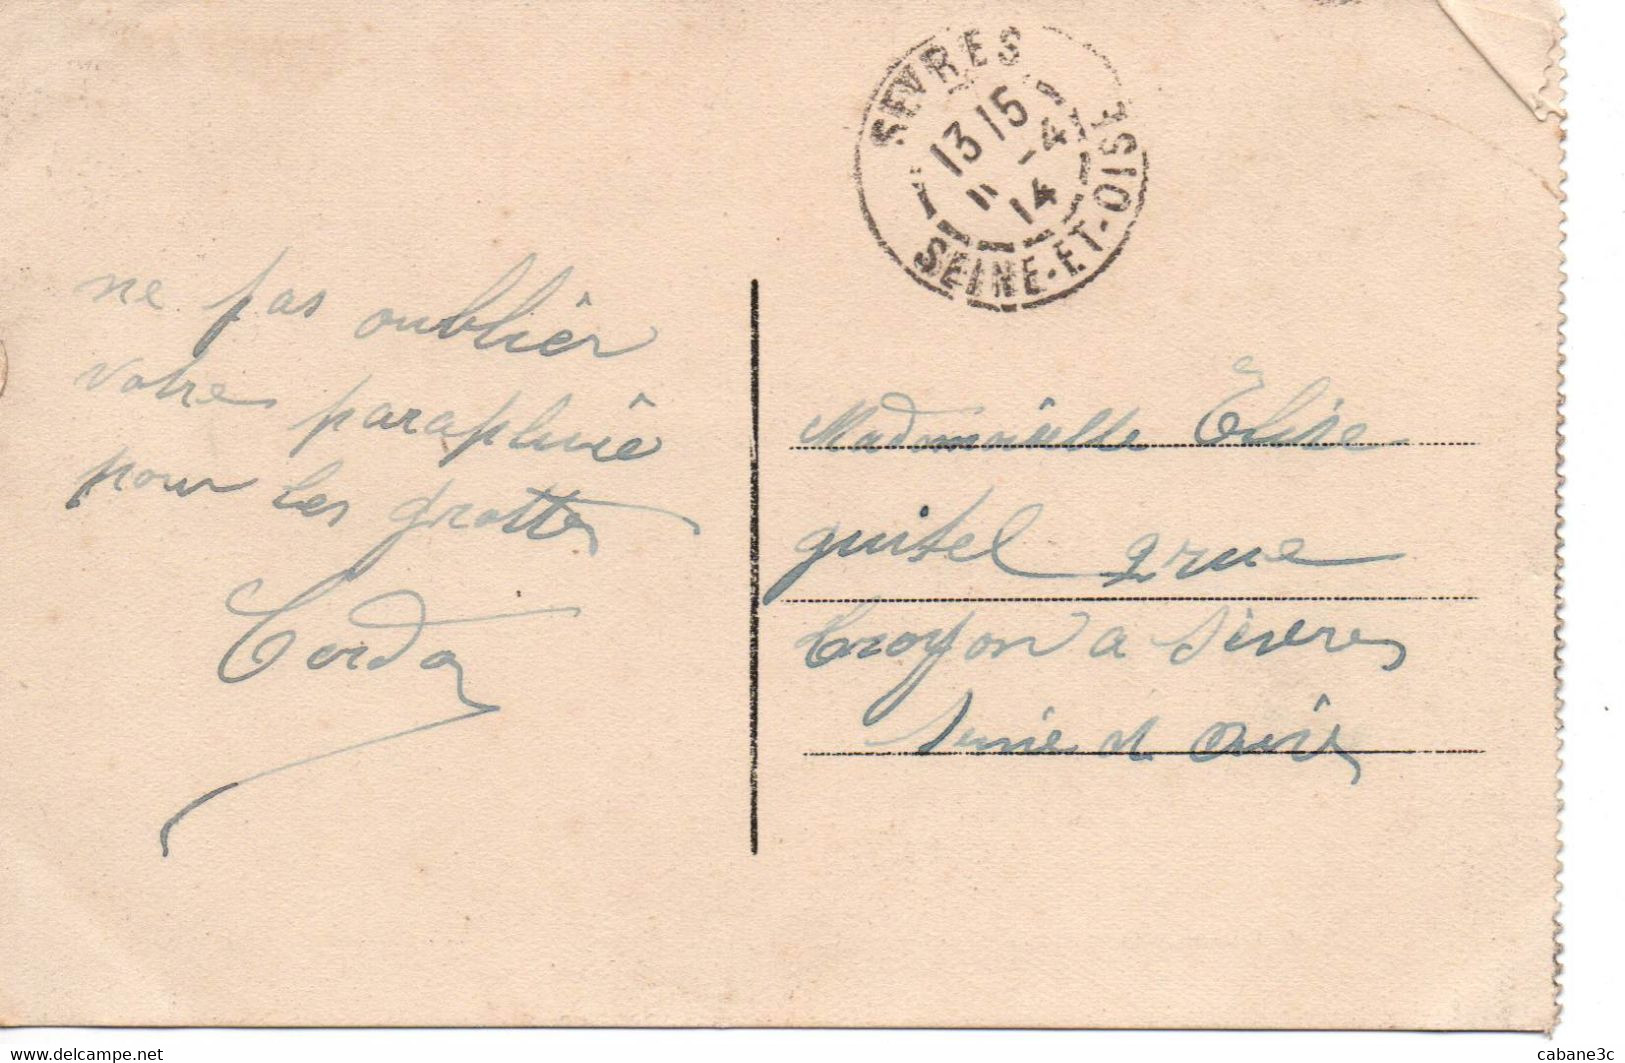 SEVRES
13 15
11 -4
14
SEINE-ET-OISE
ne pas oublier
votre parapluie
pour les grottes
Madmoiselle Elise
guitel 2 rue
troyon a Sèvres
Seine et Oise
cabane3c